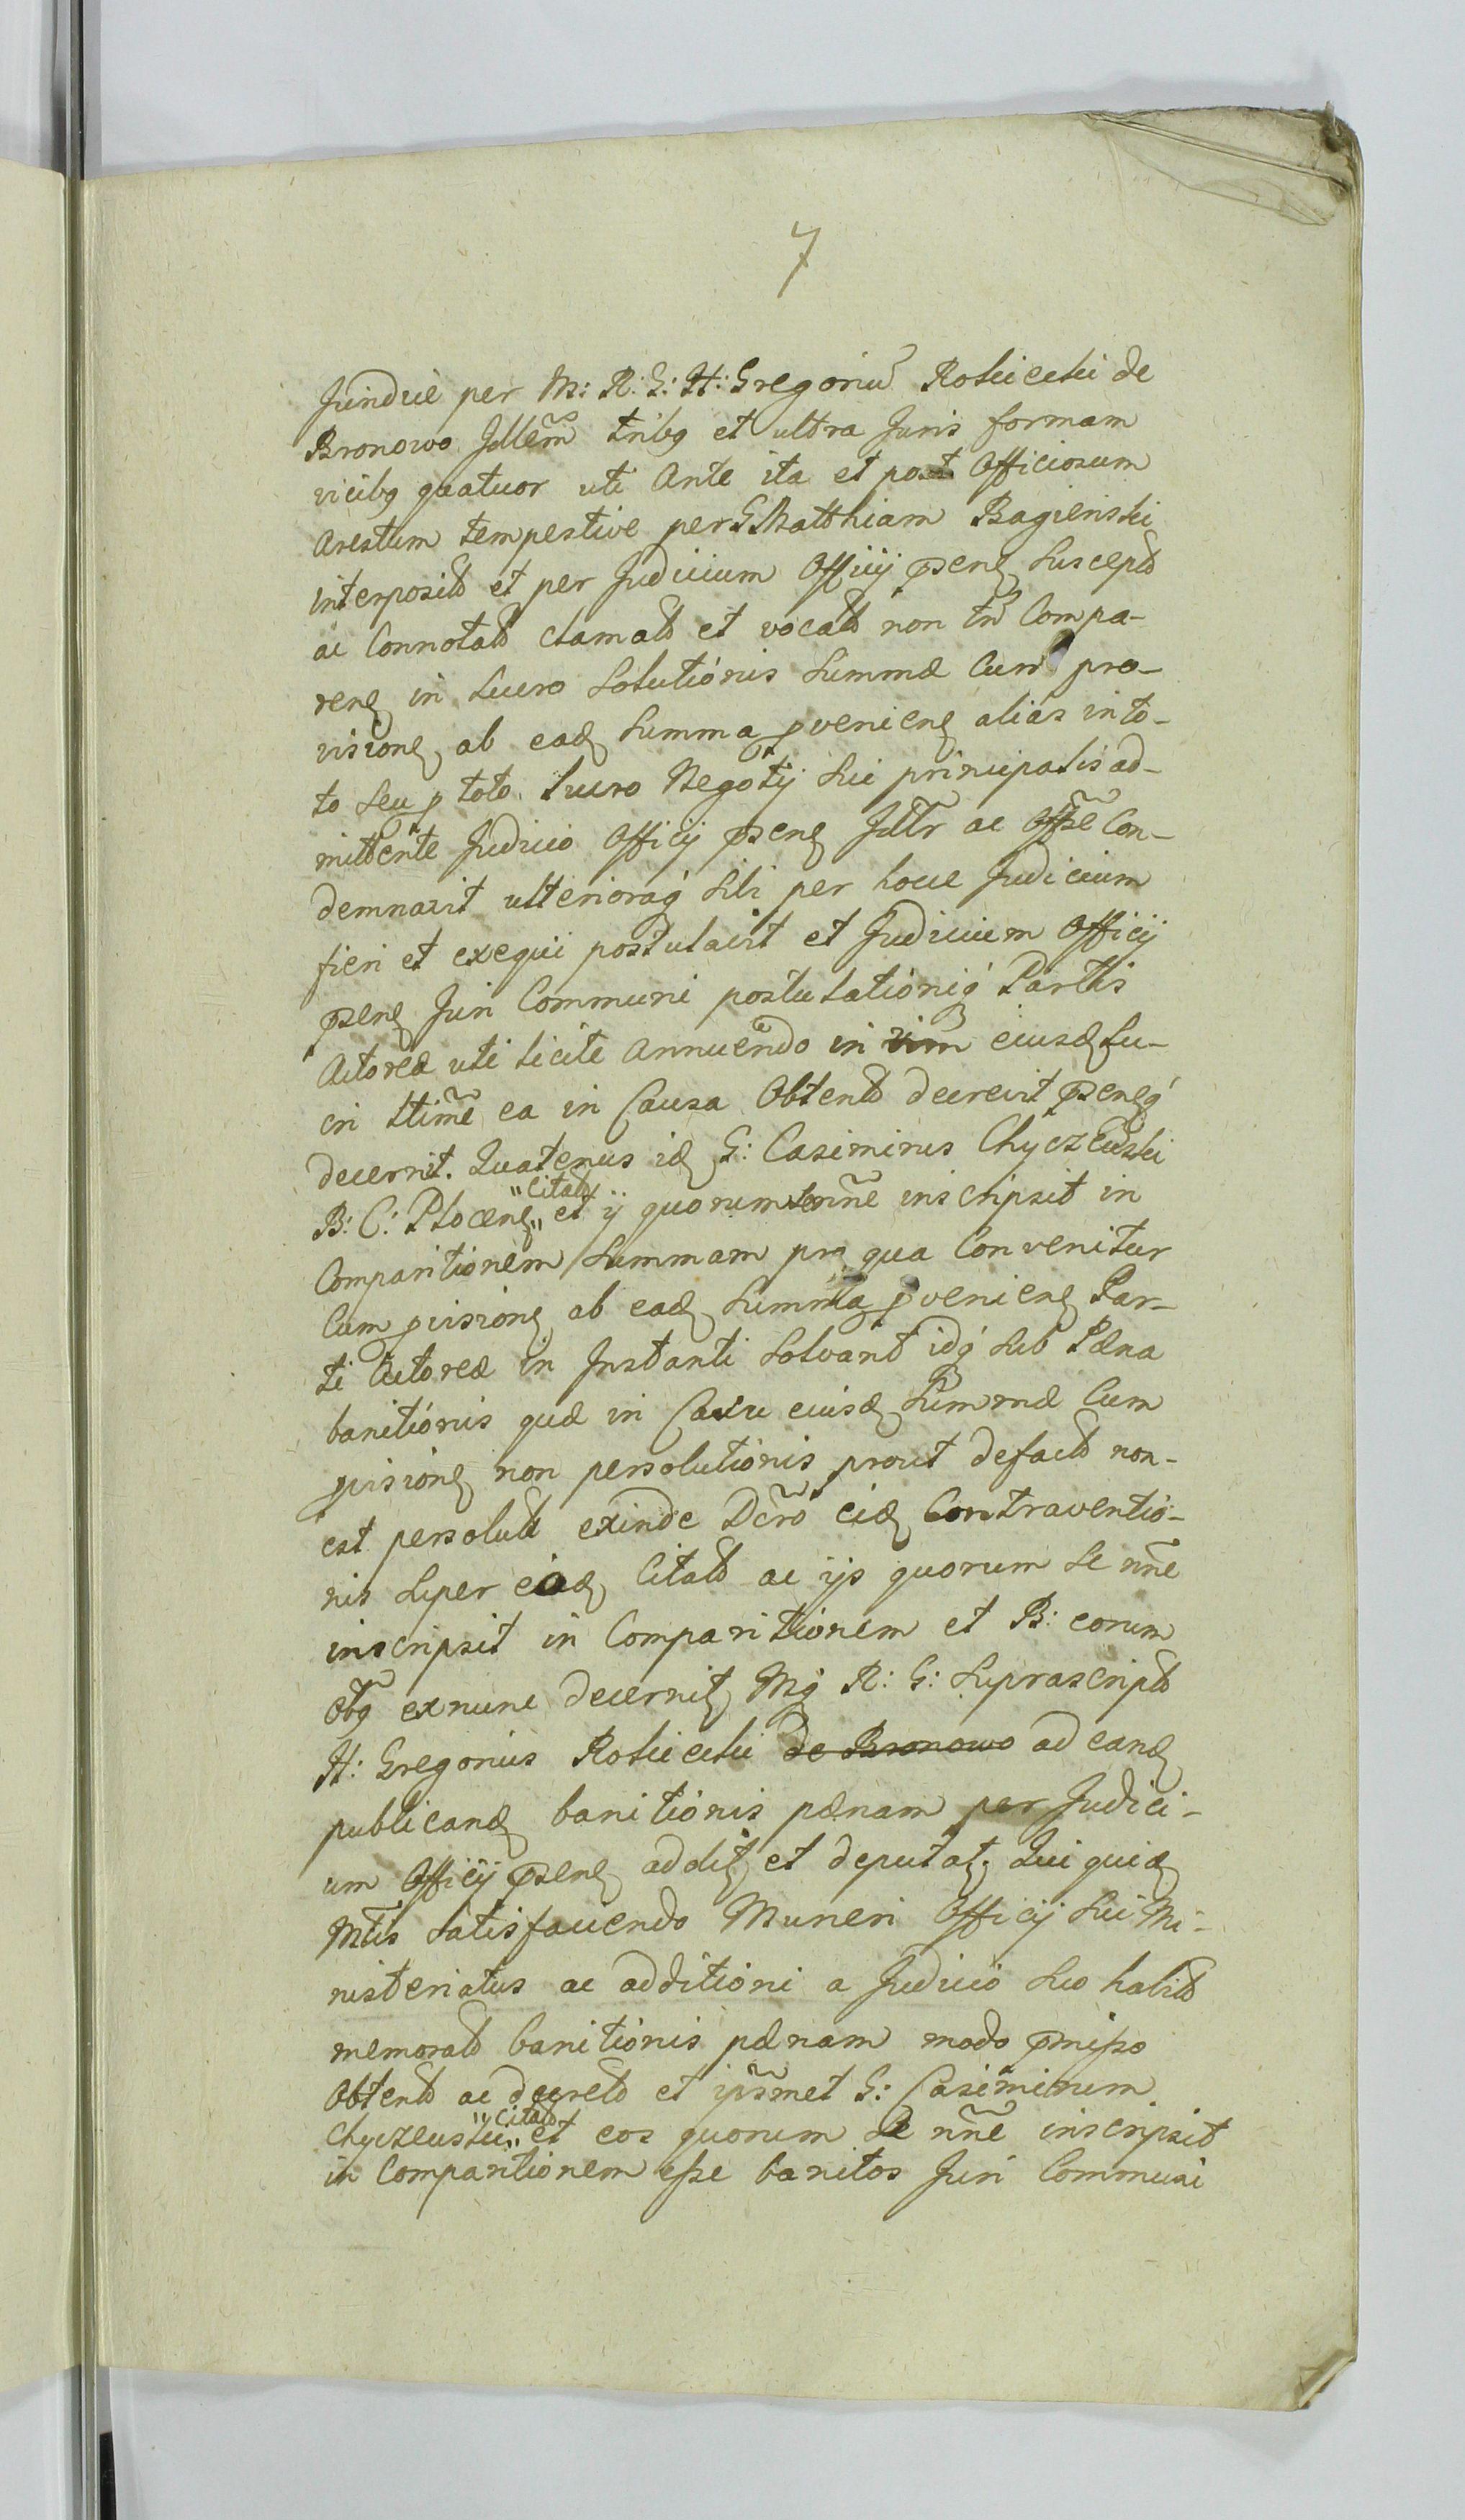 7
Juridice per M: R: G: H: Gregoriũ Rokicki de
Bronowo Jdlem̃ tribq et ultra Juris formam
vicibq quatuor uti Ante ita et post Officiosum
arestum tempestive per G Matthiam Bagienski
interposit et per Judicium Officij pseng suscept
ac Connotat clamat et vocat non tñ Compa-
reng in lucro Solutionis Summæ Cum pro-
visione ab ead Summa pvenieng alias in to-
to seu p toto lucro Negotij sui principalis ad-
mittente Judicio Officij pseng Jdltr ac Offse Con-
demnavit ulterioraq sibi per hocce Judicium
fieri et exequi postulavit et Judicium Officij
pseng Juri Communi postulationiq Partis
Actoreæ uti licite annuendo in vim eiusd Lu-
cri ltime ea in Causa Obtent decrevit psengq
decernit. Quatenus id G: Casimirus Chyczewski
B: C: Ploceng „Citat„ et ij quorum se nñe inscripsit in
Comparitionem Summam pro qua Convenitur
Cum pvisione ab ead Summa pvenieng Par-
ti Actoreæ in Instanti solvant idq sub Pæna
banitionis quæ in Casu eiusd Summæ Cum
pvisione non persolutionis prout defacto non-
est persolut exinde Dcr̃o eid Contraventio-
nis super eod Citat ac ijs quorum se nñe
inscripsit in Comparitionem et B: eorum
Obq exnunc decernit Mq R: G: Suprascript
H: Gregorius Rokicki de Bronowo ad eand
publicand banitionis pænam per Judici-
um Officij pseng addit et deputat. Qui quid
Mtis satisfaciendo Muneri Officij sui Mi-
nisterialus ac additioni a Judicio suo habit
memorat banitionis pænam modo pmisso
Obtent ac decret et ipsm̃et G: Casimirum
Chyczewski „Citat„ et eos quorum se nñe inscripsit
in Comparitionem esse banitos Juri Communi